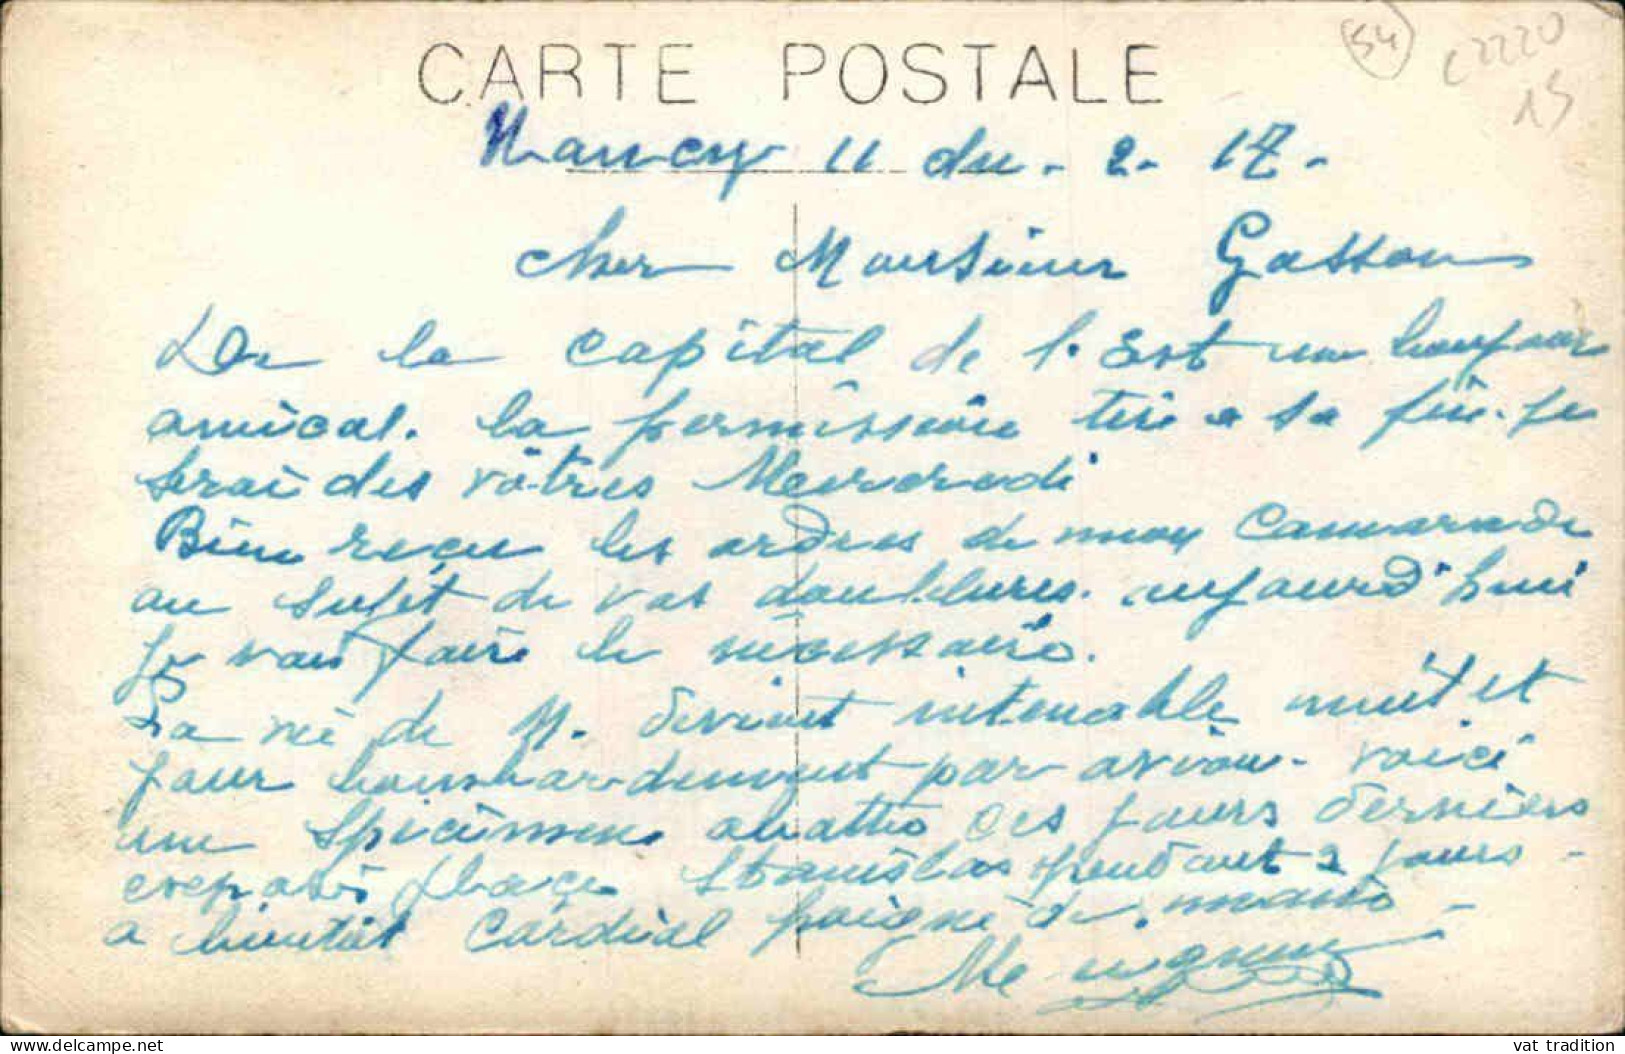 CARTE POSTALE
54
C2220
15
Nancy 11 du - 2 - 17 -
Cher Monsieur Gaston
De la capital de l'Est un bonjour
amical. la permission tire a sa fin. je
serai des vôtres Mercredi
Bien reçu les ordres de mon Camarade
au sujet de vos doublures. aujourd'hui
je vais faire le nécessaire.
La vie de N. devient intenable nuit et
jour bombardement par avion - voici
une spécimen abattu ces jours derniers
exposé place Stanislas pendant 2 jours -
a bientôt Cordial poigné de mains -
vat tradition